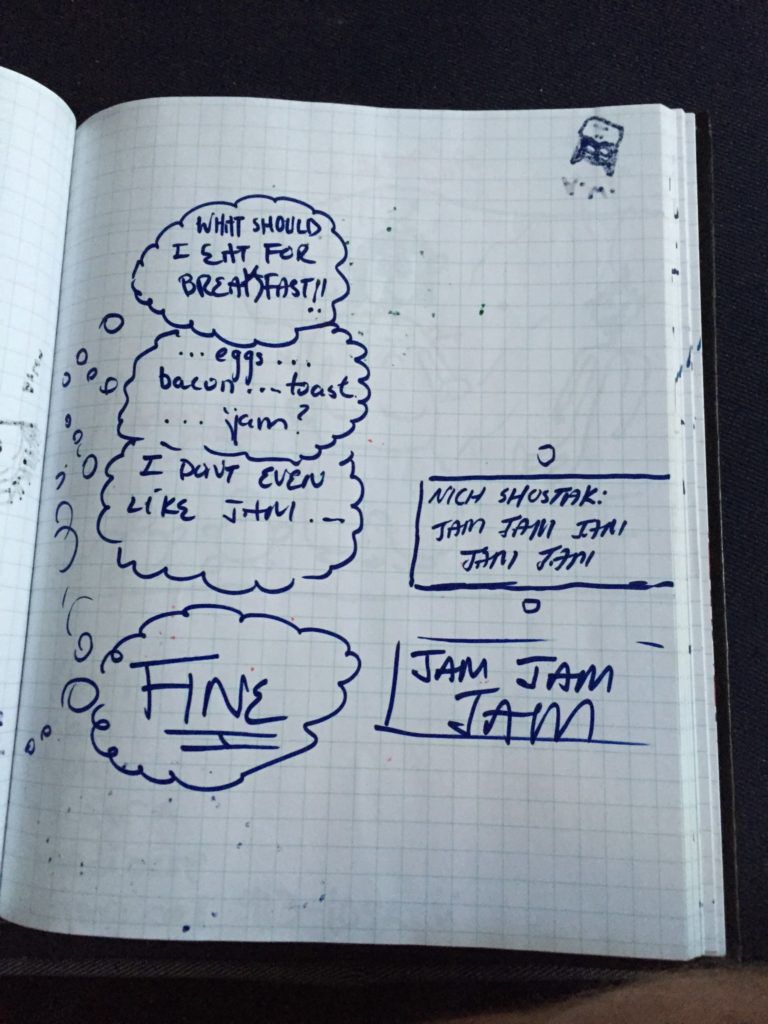 WHAT SHOULD
I EAT FOR
BREAKFAST!!
... eggs ...
bacon ... toast
... jam?
I DONT EVEN
LIKE JAM ...
FINE
NICH SHOSTAK:
JAM JAM JAM
JAM JAM
JAM JAM
JAM